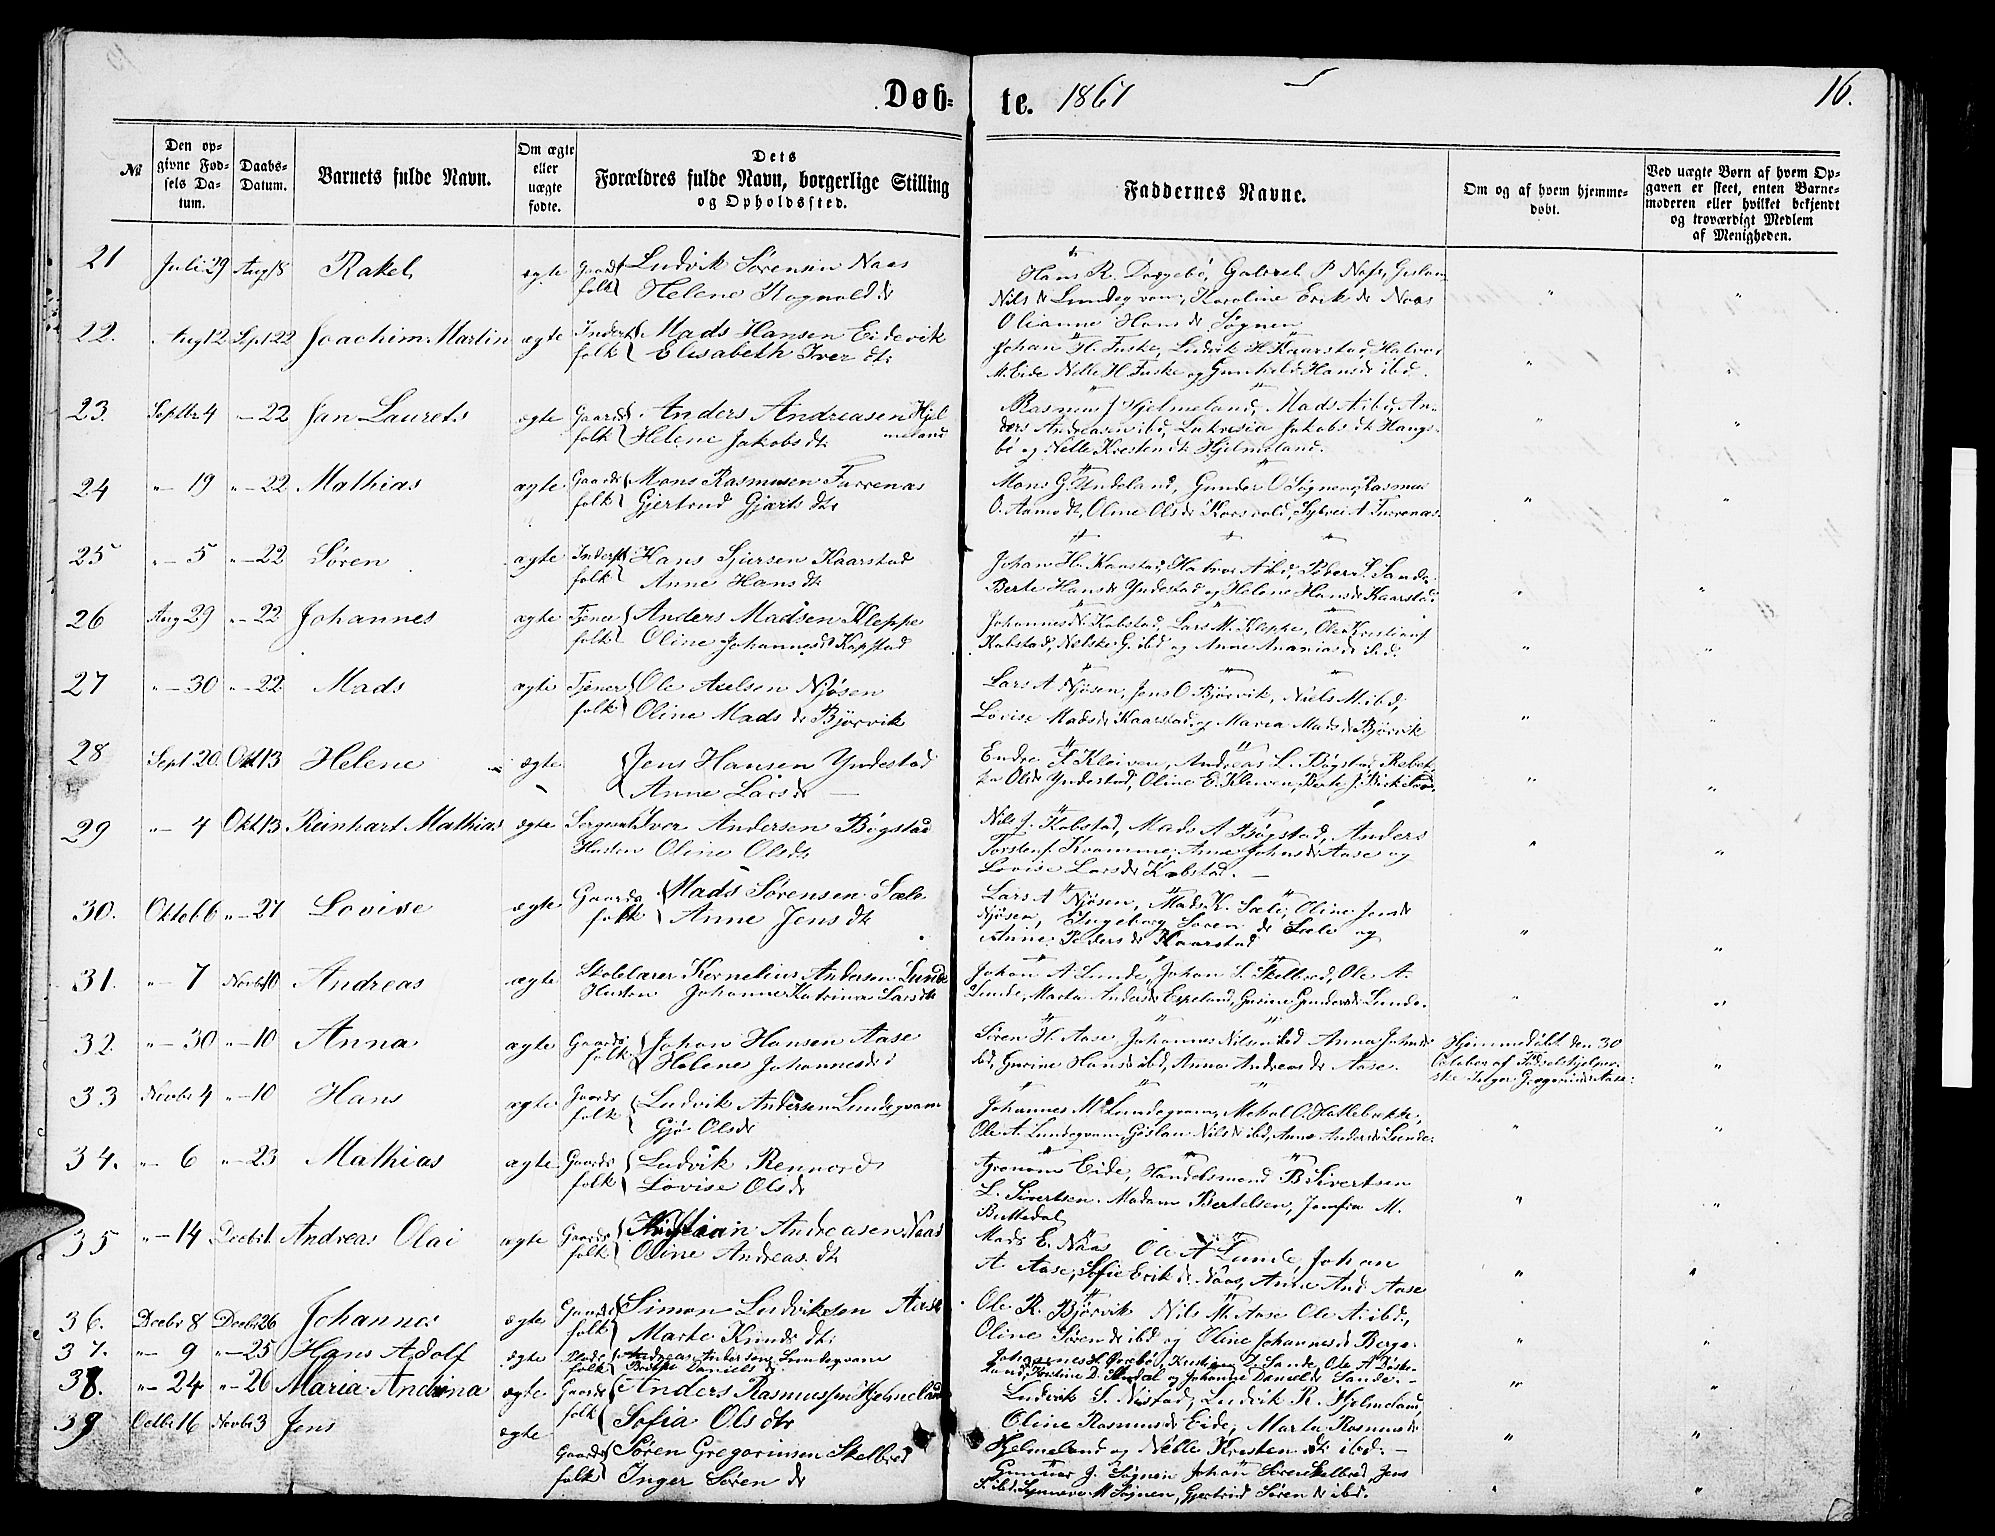 Døb-
te. 1861
16.
№
Den opgivne Fødsels Datum.
Daabs-Datum.
Barnets fulde Navn.
Om ægte eller uægte fødte.
Dets
Forældres fulde Navn, borgerlige Stilling
og Opholdssted.
Faddernes Navne.
Om og af hvem hjemmedøbt.
Ved uægte Børn af hvem Opgaven er skeet, enten Barnemoderen eller hvilket bekjendt og troværdigt Medlem af Menigheden.
21 Juli 29 Aug 18 Rakel ægte Gaardfolk Ludvik Sørensen Naas
Helene Rognald dt
Nils dt Lundegvam, Karoline Erik dt Naas
Olianne Hans dt Søgnen
22. Aug 12 Sept 22 Joachim Martin ægte Inderstfolk Mads Hansen Eidevik
Elisabeth Iver dt
Johan H. Fuske, Ludvik H Kaarstad, Halvor
M. Eide Nelle H Fuske og Gunhild Hans dt ibd.
23. Septbr 4 - 22 Jan Laurets ægte Gaardsfolk Anders Andreasen Hjelmeland
Helene Jakobs dt
Rasmus J Hjelmeland, Mads A ibd, Anders Andreasen ibd, Lukresia Jakobs dt Haugsbø og Nelle Kresten dt Hjelmeland.
24 " - 19 " - 22 Mathias ægte Gaardsfolk Mons Rasmusen Farrenas
Gjertrud Gjærts dt
Mons G. Undeland, Gunder O Søgnen, Rasmus
25 " - 5 " - 22 Søren ægte Inderstfolk Hans Sjursen Kaarstad
Anne Hans dt
Berte Hans dt Yndestad og Helene Hans dt Kaarstad.
26 Aug 29 " - 22 Johannes ægte Tjenerfolk Anders Madsen Kleppe
Oline Johannes dt Kapstad
Johannes N. Kabstad, Lars M. Kleppe, Ole Kristians
27 " - 30 " - 22 Mads ægte Tjenerfolk Ole Axelsen Njøsen
Oline Mads dt Bjørvik
Lars A Njøsen, Jens O Bjørvik, Niels M. ibd,
Lovise Mads dt Kaarstad og Maria Mads dt Bjørvik
28 Sept 20. Okt 13 Helene ægte Jens Hansen Yndestad
Anne Lars dt
Endre S. Kleiven, Andreas L. Bøgstad, Rebekka Ols dt Yndestad, Oline E. Kleiven,
29 " - 4 Okt 13 Reinhart Mathias ægte Sergeant Ivar Andersen Bøgstad
Hustru Oline Ols dt
Nils J. Kabstad, Mads A Bøgstad, Anders
Torstens. Kramme, Anne Johns dt Aase og
Lovise Lars dt Kabstad.
30. Oktob 6 " - 27 Lovise ægte Gaardsfolk Mads Sørensen Sæle
Anne Jens dt
Lars A Njøsen, Mads K. Sæle, Oline Jens dt
Njøsen, Ingeborg Søren dt Sæle og
Anne Peders dt Kaarstad
31. " - 7 Novbr 10 Andreas ægte Skolelærer Kornelius Andersen Lunde
Hustru Johanne Katrine Lars dt
Johan A Lunde, Johan S. Skelbred, Ole A.
Lunde, Marta Anders dt Espeland, Gurine Gunders dt Lunde.
32. " - 30 " - 10 Anna ægte Gaardsfolk Johan Hansen Aase
Helene Johannes dt
Søren H. Aase Johannes Nilsen ibd Anna Johns dt
ibd, Gurine Hans dt ibd, Anna Andreas dt Aase.
Hjemmedøbt den 30
Oktober af Fødselshjelperske Inger Gregorius dt Aase.
33 Novbr 4 " - 10 Hans ægte Gaardsfolk Ludvik Andersen Lundegvam
Gjø Ols dt
Johannes M. Lundegvam, Mikal O. Hatlebakke,
Ole A. Lundegvam, Gislau Nils dt ibd, Anne Anders dt Lunde.
34. " - 6 " - 23 Mathias ægte Gaardsfolk Ludvik Rennords
Lovise Ols dt
Agronom Eide, Handelsmand B Sivertsen
L. Sivertsen. Madam Bertelsen, Josefia M.
35 " - 14 Decbr 1. Andreas Olai ægte Gaardsfolk Kristian Andreasen Naas
Oline Andreas dt
Mads E. Naas Ole A Lunde, Johan
A. Aase, Sofie Erik dt Naas, Anne And. Aase
36. Decbr 8 Decbr 26 Johannes ægte Gaardsfolk Simon Ludviksen Aase
Marte Knuds dt
Ole R. Bjørvik Nils M. Aase Ole A. ibd,
Oline Søren dt ibd og Oline Johannes dt Berge.
37. " - 9 " - 25 Hans Adolf ægte Pladsfolk Andreas Andersen Lundegvam
Daniels dt
38. " - 24 " - 26 Maria Andrina ægte Gaardsfolk Anders Rasmussen Hjelmeland
Sofia Ols dt
Ludvik S. Nistad, Ludvik R. Hjelmeland
Oline Rasmus dt Eide, Marta Rasmus dt
Hjelmeland og Nelle Kresten dt ibd.
39 Octbr 16 Novbr 3 Jens ægte Gaardsfolk Søren Gregoriusen Skelbred
Inger Søren dt
Gunnar J. Søgnen Johan Søren Skelbred, Jens
S. ibd, Synneve M Søgnen, Gjertrud Søren dt ibd.